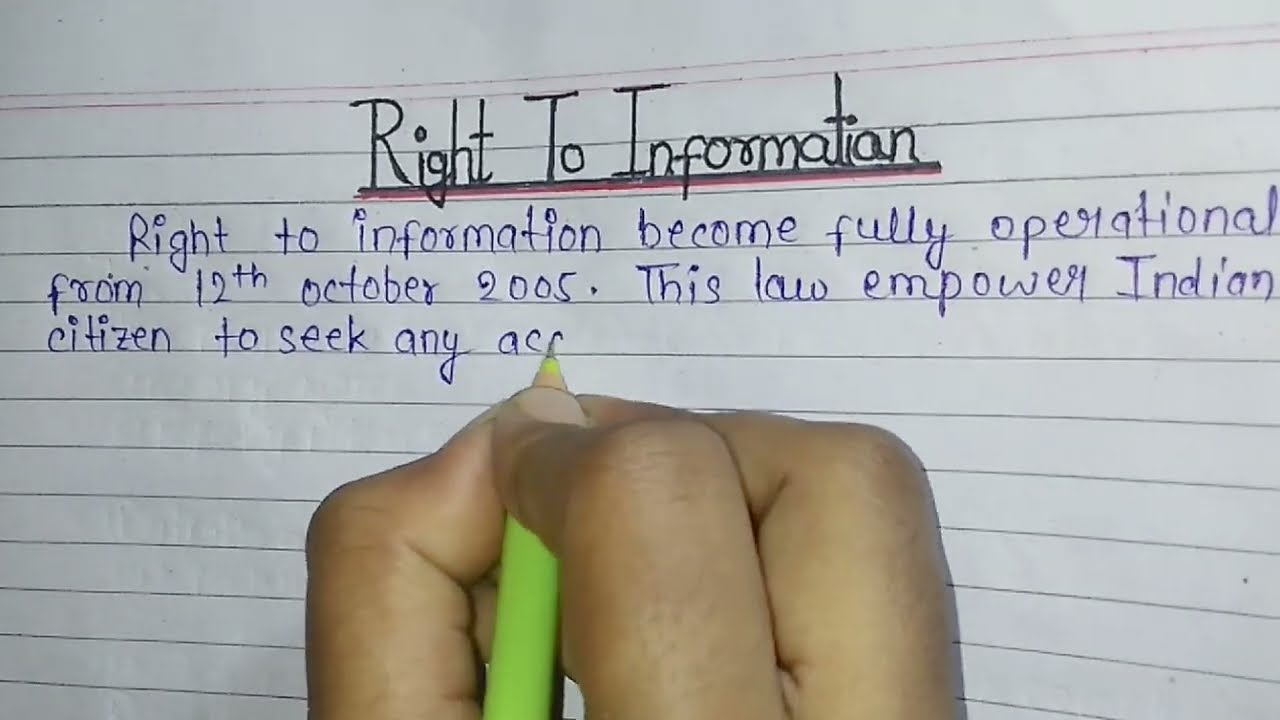 Right To Informatian
Right to information become fully operational
from 12th october 2005. This law empower Indian
citizen to seek any acc